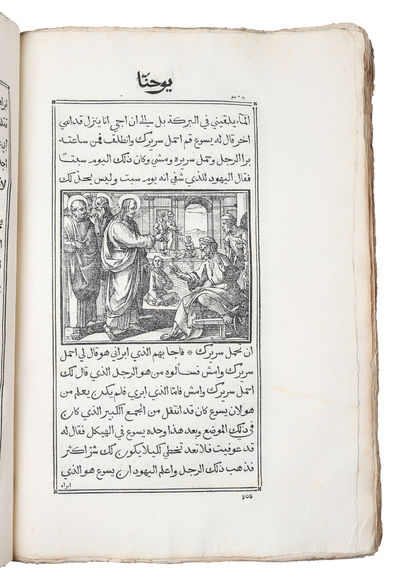 يوحنّا
الماء يلقيني في البركة بل الى ان اجي انا ينزل قدامي
اخر قال له يسوع قم احمل سريرك وانطلق فمن ساعته
برا الرجل وحمل سريره ومشي وكان ذلك اليوم سبتًا
فقال اليهود للذي شفي انه يوم سبت وليس يحل لك
ان تحمل سريرك * فاجابهم الذي ابراني هو قال لي احمل
سريرك وامش فسالوه من هو الرجل الذي قال لك
احمل سريرك وامش فامّا الذي ابري فلم يكن يعلم من
هو لان يسوع كان قد انتقل من الجمع الكبير الذي كان
في ذلك الموضع وبعد هذا وجده يسوع في الهيكل فقال له
قد عوفيت فلا تعد تخطي لكيلا يكون لك شرّ اكثر
فذهب ذلك الرجل واعلم اليهود ان يسوع هو الذي
ابراه